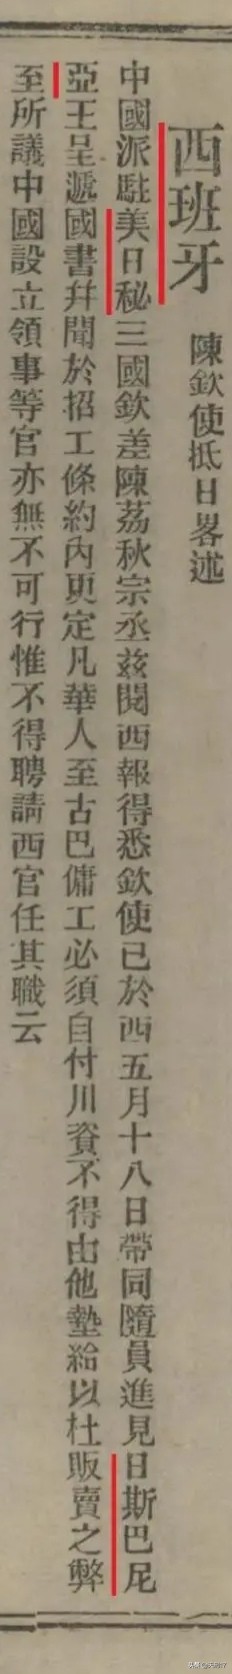 西班牙
陳欽使抵日畧述
中國派駐美日秘三國欽差陳荔秋宗丞茲閱西報得悉欽使已於西五月十八日帶同隨員進見日斯巴尼
亞王呈遞國書幷聞於招工條約內更定凡華人至古巴傭工必須自付川資不得由他墊給以杜販賣之弊
至所議中國設立領事等官亦無不可行惟不得聘請西官任其職云